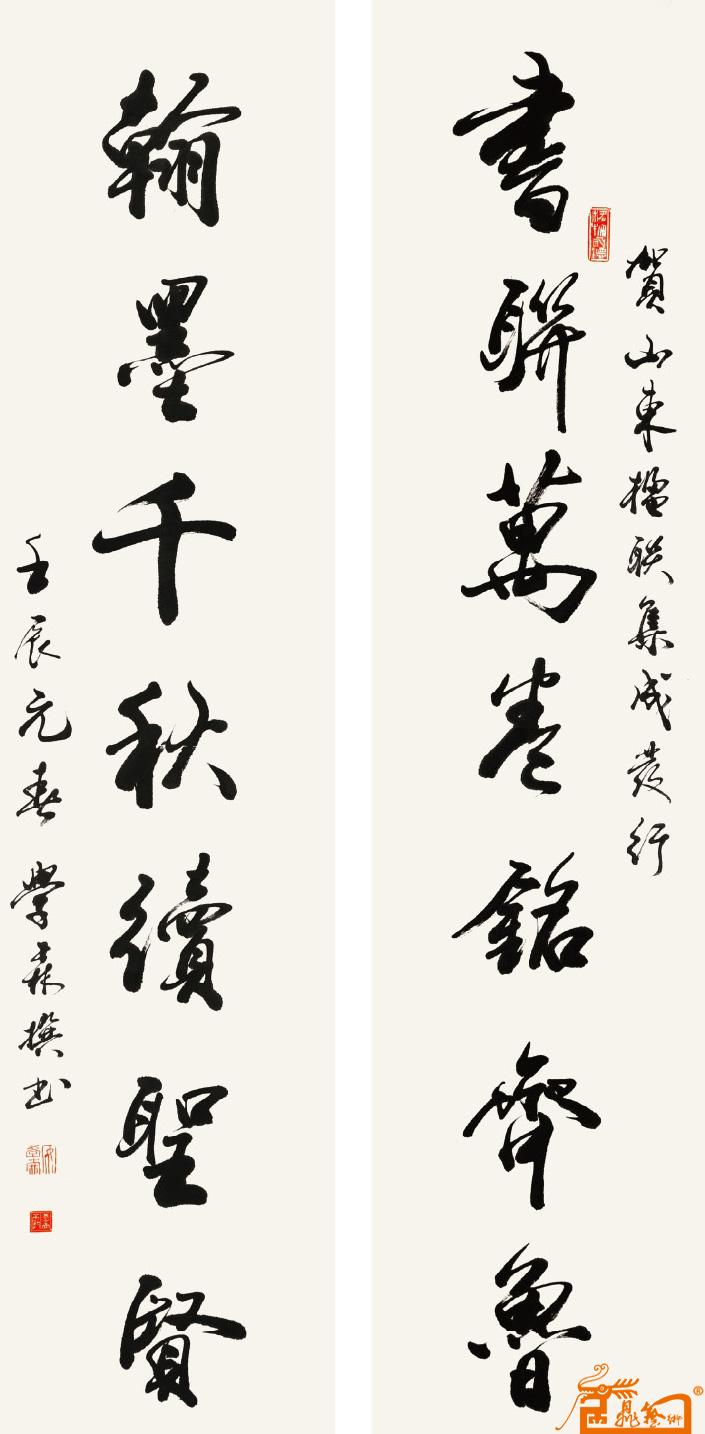 賀山東楹联集成发行
書聯萬卷銘齊魯
翰墨千秋續聖賢
壬辰元春學森撰书